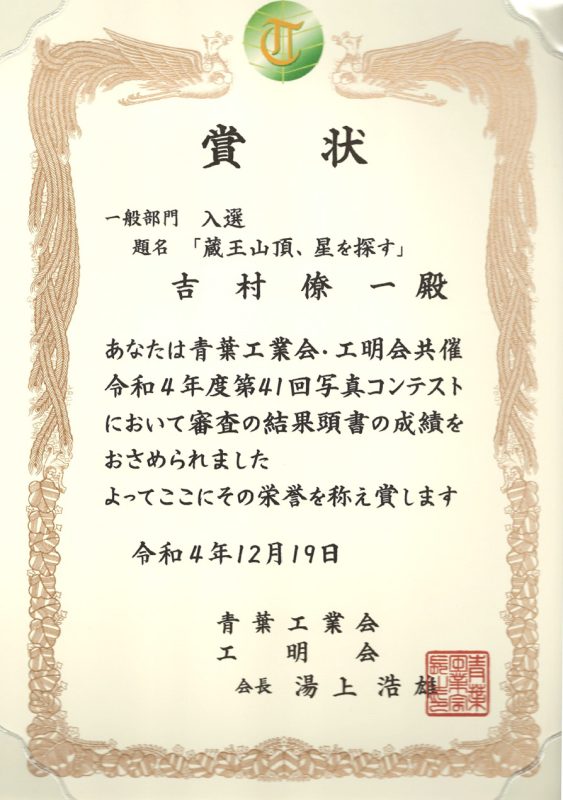 賞 状
一般部門 入選
題名 「蔵王山頂、星を探す」
吉 村 僚 一 殿
あなたは青葉工業会・工明会共催
令和4年度第41回写真コンテスト
において審査の結果頭書の成績を
おさめられました
よってここにその栄誉を称え賞します
令和4年12月19日
青 葉 工 業 会
工 明 会
会長 湯 上 浩 雄